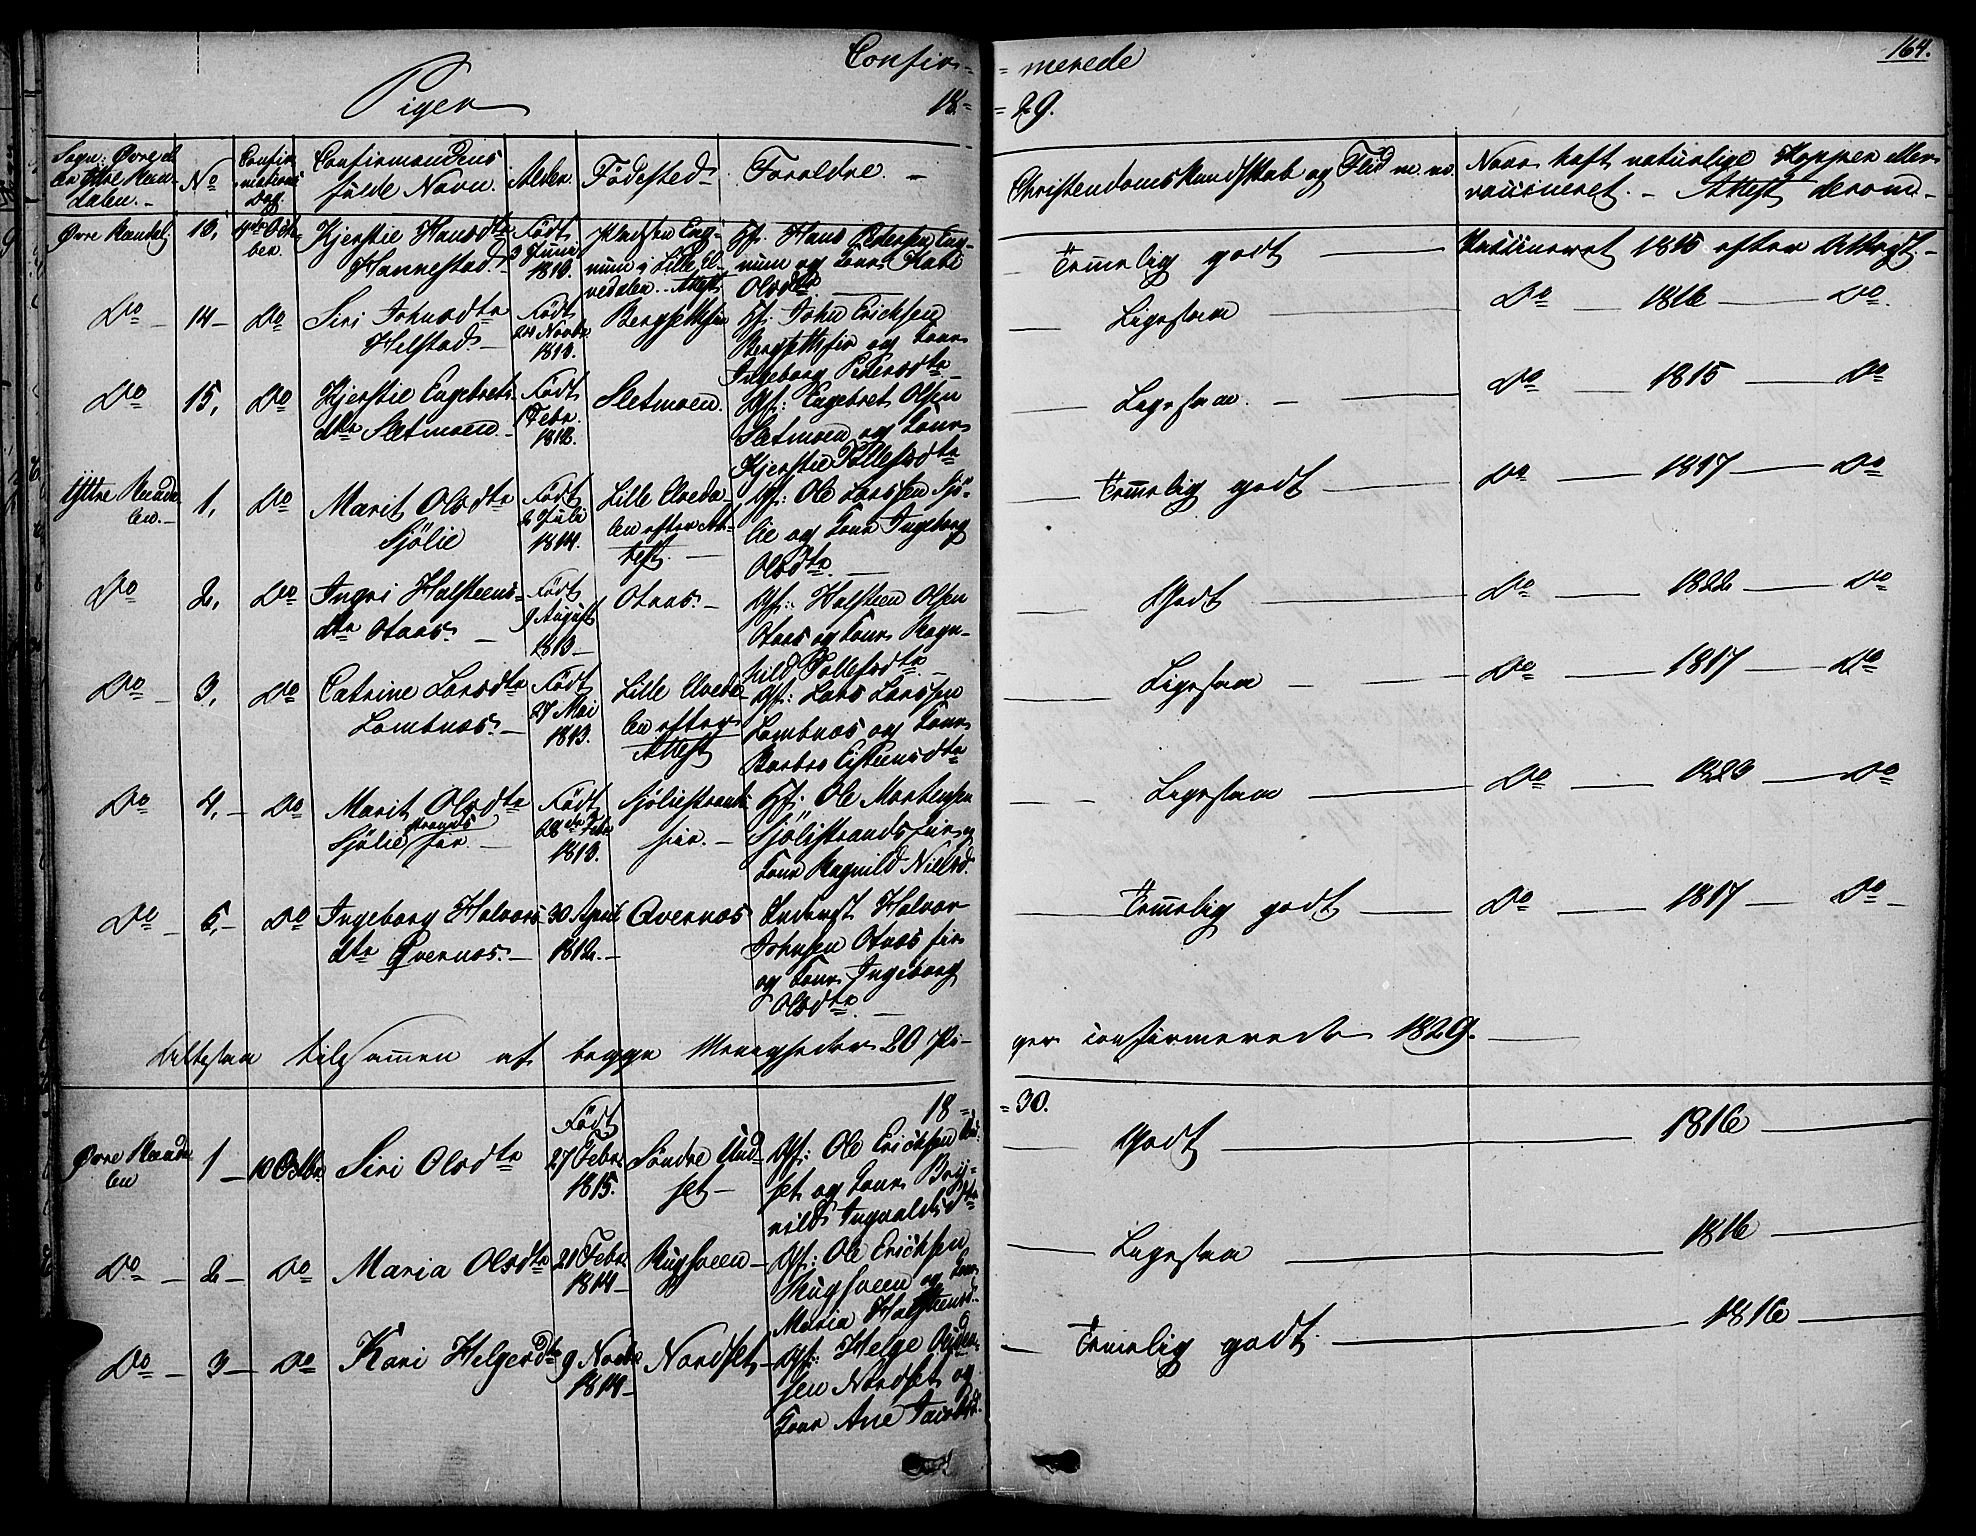 Confir= =merede 164.
Piger 18= =29.
Sogn: Øvre el-
ler Yttre Ren-
dalen.-
No
Confir
mations
Dag
Confirmandens
fulde Navn.
Alder.
Födested
Foreldre. -
Christendomskundskab og Flid m. m.
Naar haft naturlige Kopper eller
vaccineret. - Attest derom -
Øvre Rendal. 13, 4de Octo-
ber.
Kjerstie Hansdtr
Hannestad
Född
3 Junii
1813.
Pladsen Eng-
num i Lille El-
vedalen. - Attest
Gf. Hans Pedersen Eng-
num og Kone Kari
Olsdtr
Temelig godt Vaccineret 1815 efter Attest -
Do - 14 - Do Siri Johnsdtr
Helstad -
Född
24 Novbr
1813.
Bergsetthfir
Hf. John Erichsen
Bergsetfir og Kone
Ingeborg Pedersdtr
Ligesaa Do 1816 Do.
Do 15, Do Kjerstie Engebrets
dtr Sletmoen. -
Född
1 Febr.
1812.
Sletmoen.
Gf: Engebret Olsen
Sletmoen og Kone
Kjerstie Tollefsdtr
Ligesaa. - Do 1815 Do
Yttre Renda-
len. - 1, Do Marit Olsdtr
Sjölie
Född
2 Juli
1814.
Lille Elveda-
len efter At-
test. -
Gf: Ole Larssen Sjö-
lie og Kone Ingeborg
Olsdtr. -
Temelig godt Do 1817 Do
Do 2, Do Ingri Halsteens-
dtr Otnes. -
Född
9 August
1813 -
Otnes. -
Gf: Halsteen Olsen
Otnes og Kone Ragn-
hild Tollefsdtr
Godt Do 1822 Do
Do - 3, Do Catrine Larsdtr
Lombnæs. -
Född
27 Mai
1813.
Lille Elveda-
len efter
Attest
Gf: Lars Larssen
Lombnæs og Kone
Barbro Eisteensdtr
Ligesaa - Do 1817 Do
Do 4, - Do Marit Olsdtr
Sjöliestrands
fir. -
Född
28de Febr
1813.
Sjöliestrand-
fir. -
Hf: Ole Mortensen
Sjölistrandsfir og
Kone Ragnild Nielsd.
Ligesaa Do 1823 Do
Do - 5, - Do Ingeborg Halvors
dtr Qvernæs. -
30 April
1812. -
Qvernæs
Inderst Halvor
Johnsen Otnes fir
og Kone Ingeborg
Olsdtr. -
Temelig godt Do 1817 Do -
tilsamen af begge Menigheder 20 Pi-
ger confirmerede 1829.
18= =30.
Øvre Renda-
len 1 - 10 Octbr. Siri Olsdtr
Född
27 Febr.
1815.
Söndre Und-
set -
Gf: Ole Erichsen Und-
set og Kone Bryn-
nild Ingvaldsdtr
Godt 1816
Do - 2 - Do Maria Olsdtr
21 Febr.
1814 -
Rugsveen -
Gf: Ole Erichsen
Rugsveen og Kone
Maria Halsteensd.
Ligesaa 1816
Do - 3 - Do Kari Helgesdtr
9 Novbr
1814 -
Nordset -
Gf: Helge
sen Nordset og
Kone Ane
Temelig godt. 1816